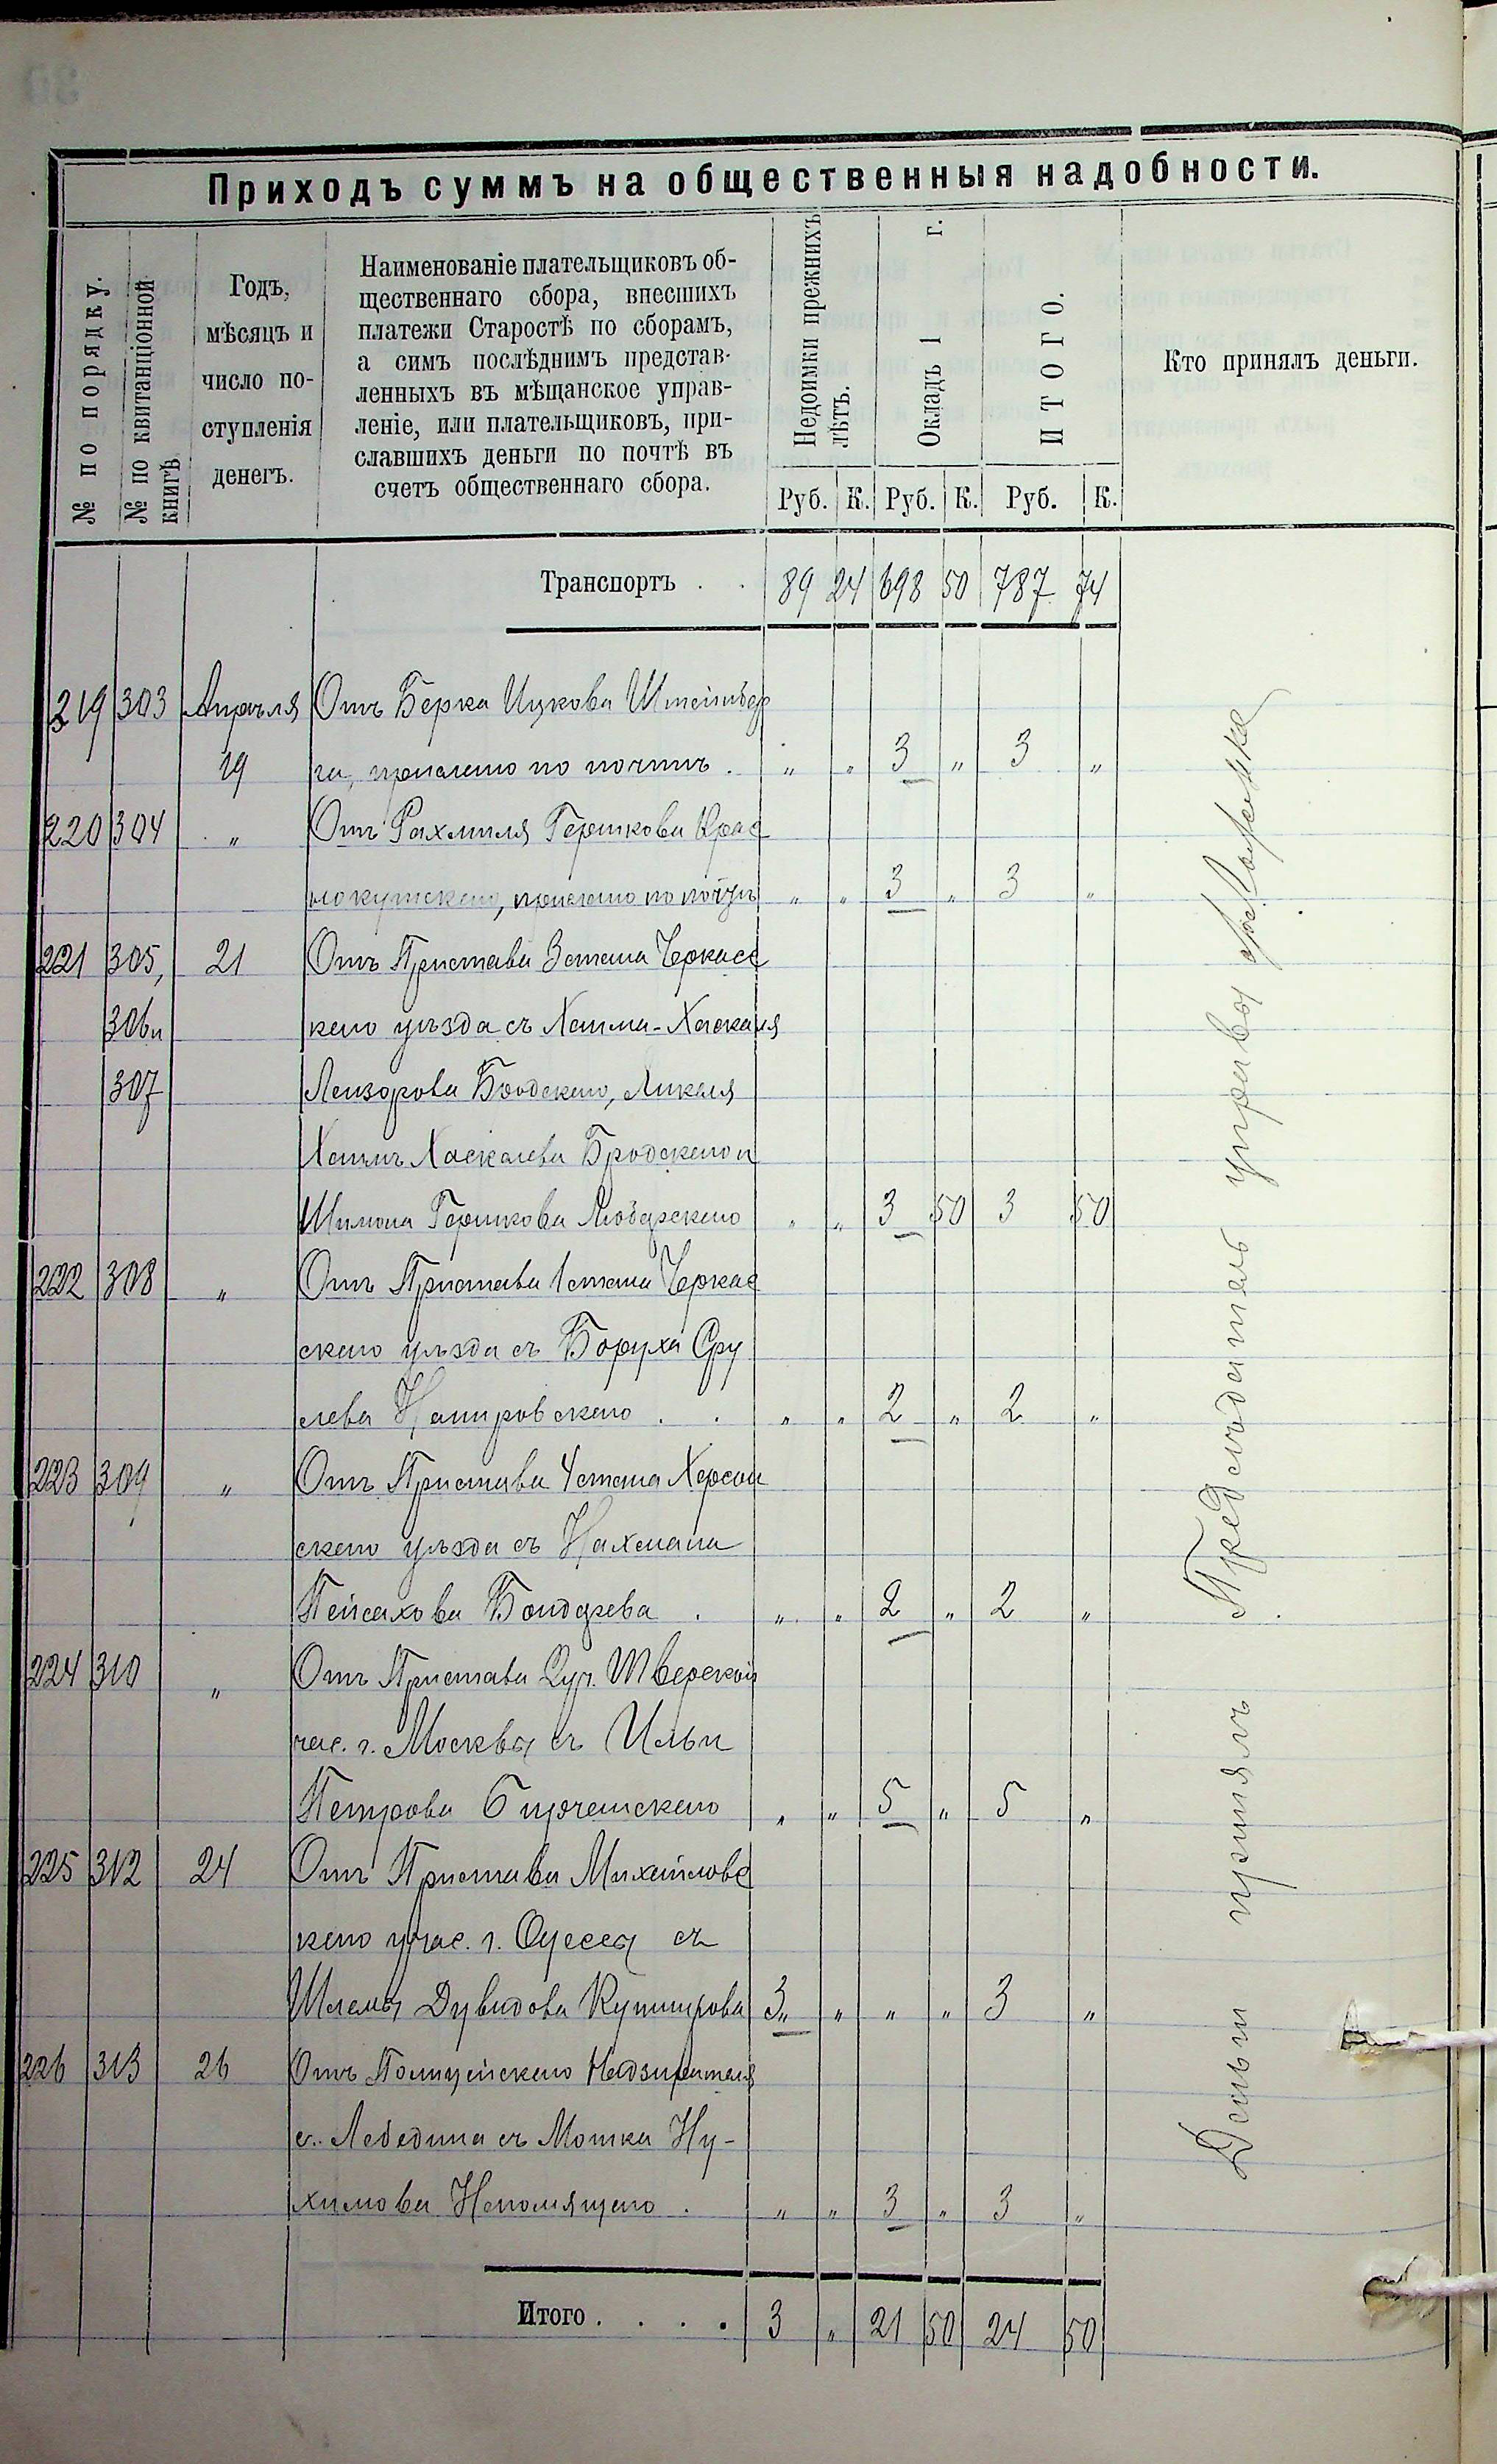 Приходъ суммъ на общественныя надобности.
№ по порядку.
№ по квитанціонной
книгѣ
Годъ,
мѣсяцъ и
число по-
ступленія
денегъ.
Наименованіе плательщиковъ об-
щественнаго сбора, внесшихъ
платежи Старостѣ по сборамъ,
а симъ послѣднимъ представ-
ленныхъ въ мѣщанское управ-
леніе, или плательщиковъ, при-
славшихъ деньги по почтѣ въ
счетъ общественнаго сбора.
Недоимки прежнихъ
лѣтъ.
Окладъ 1 г.
ИТОГО.
Кто принялъ деньги.
Руб. К. Руб. К. Руб. К.
Транспортъ . . 89 24 698 50 787 74
219 303 Апрѣля Отъ Берка Ицкова Штейнбер
19 га, прислано по почтѣ . " " 3 " 3 "
220 304 " Отъ Рахмиля Гершкова Крас
нокутскаго, прислано по почтѣ " " 3 " 3 "
221 305, 21 Отъ Пристава 3 стана Черкасс
306 и каго уѣзда съ Хаима-Хаскеля
307 Лейзорова Бродскаго,
Хаимъ Хаскелева Бродскаго и
Шимона Гершкова Любарскаго " " 3 50 3 50
222 308 " Отъ Пристава 1 стана Черкас
скаго уѣзда съ Боруха Сру
лева . . " " 2 " 2 "
223 309 " Отъ Пристава 4 стана Херсон
скаго уѣзда съ Нахмана
Пейсахова Бондарева . " " 2 " 2 "
224 310 " Отъ Пристава 2 уч. Тверской
час. г. Москвы съ Ильи
Петрова " " 5 " 5 "
225 312 24 Отъ Пристава Михайловс
каго учас. г. Одессы съ
Шлемы Дувидова Кушнирова 3 " " " 3 "
226 313 26 Отъ Полицейскаго Надзирателя
с. Лебедина съ Мошка Ну-
химова Непомящаго . " " 3 " 3 "
Итого . . . . 3 " 21 50 24 50
Деньги принялъ Предсѣдатель управы